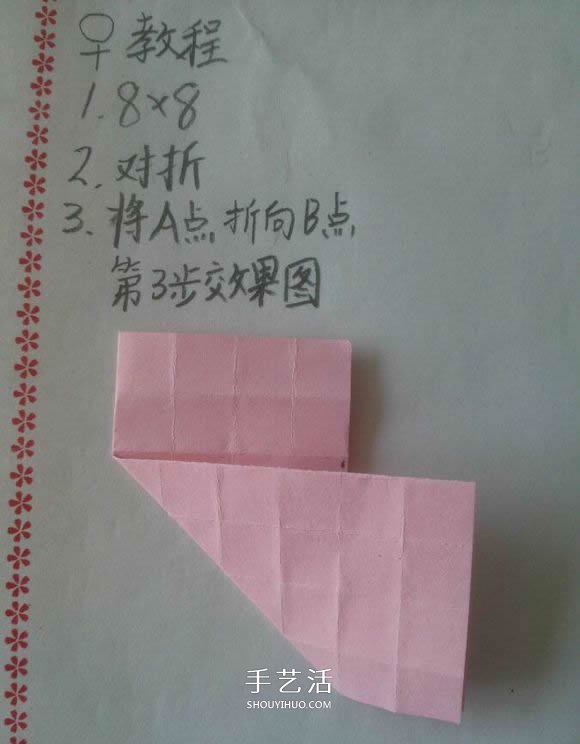 ♀教程
1. 8×8
2. 对折
3. 将A点折向B点
第3步效果图
手艺活
SHOUYIHUO.COM